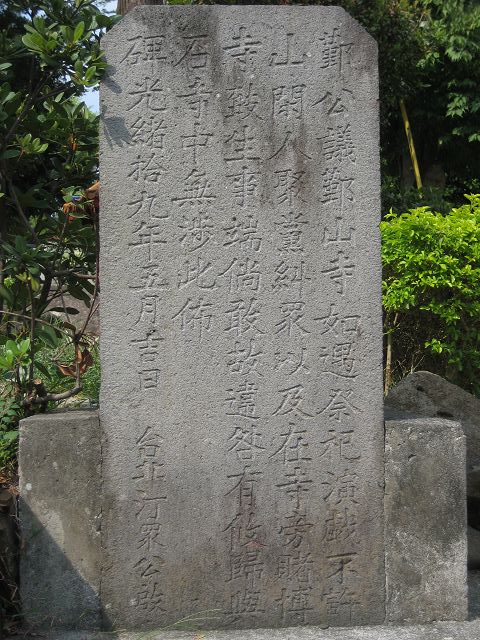 鄞公議鄞山寺如遇祭祀演戲不許
山閑人聚黨糾眾以及在寺旁賭博
寺致生事端倘敢故違咎有攸歸與
石寺中無涉此佈
碑光緒拾九年五月吉日 台北汀眾公啟